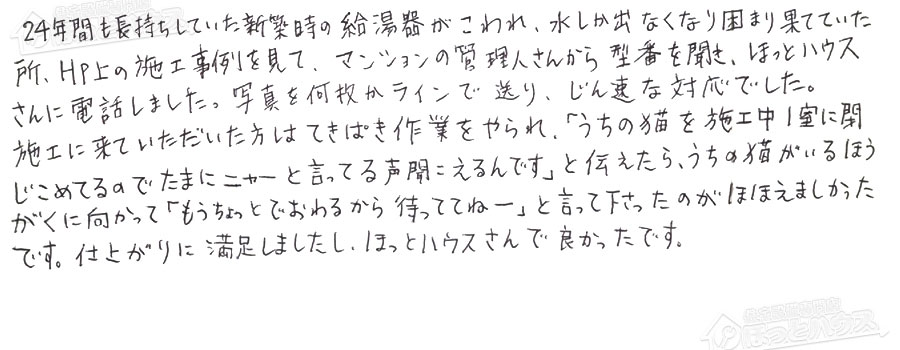 24年間も長持ちしていた新築時の給湯器がこわれ、水しか出なくなり困まり果てていた
所、HP上の施工事例を見て、マンションの管理人さんから型番を聞き、ほっとハウス
さんに電話しました。写真を何枚かラインで送り、じん速な対応でした。
施工に来ていただいた方はてきぱき作業をやられ、「うちの猫を施工中1室に閉
じこめてるのでたまにニャーと言ってる声聞こえるんです」と伝えたら、うちの猫がいるほう
がくに向かって「もうちょっとでおわるから待っててねー」と言って下さったのがほほえましかった
です。仕上がりに満足しましたし、ほっとハウスさんで良かったです。
ほっとハウス